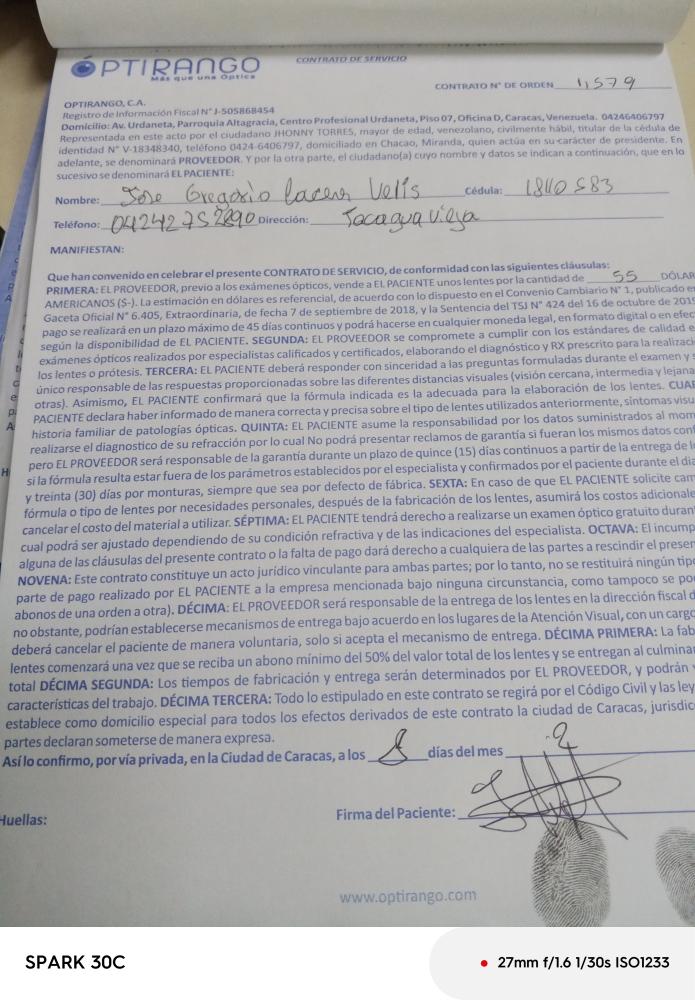 OPTIRANGO
Más que una Óptica
CONTRATO DE SERVICIO
CONTRATO N° DE ORDEN 11579
OPTIRANGO, C.A.
Registro de Información Fiscal N° J-505868454
Domicilio: Av. Urdaneta, Parroquia Altagracia, Centro Profesional Urdaneta, Piso 07, Oficina D, Caracas, Venezuela. 04246406797
Representada en este acto por el ciudadano JHONNY TORRES, mayor de edad, venezolano, civilmente hábil, titular de la cédula de
identidad N° V-18348340, teléfono 0424-6406797, domiciliado en Chacao, Miranda, quien actúa en su carácter de presidente. En
adelante, se denominará PROVEEDOR. Y por la otra parte, el ciudadano(a) cuyo nombre y datos se indican a continuación, que en lo
sucesivo se denominará EL PACIENTE:
Nombre: Jose Gregorio Velis Cédula:
Teléfono: 04242752890 Dirección: Tacagua Vieja
MANIFIESTAN:
Que han convenido en celebrar el presente CONTRATO DE SERVICIO, de conformidad con las siguientes cláusulas:
PRIMERA: EL PROVEEDOR, previo a los exámenes ópticos, vende a EL PACIENTE unos lentes por la cantidad de 55 DÓLAR
AMERICANOS ($-). La estimación en dólares es referencial, de acuerdo con lo dispuesto en el Convenio Cambiario N° 1, publicado en
Gaceta Oficial N° 6.405, Extraordinaria, de fecha 7 de septiembre de 2018, y la Sentencia del TSJ N° 424 del 16 de octubre de 201
pago se realizará en un plazo máximo de 45 días continuos y podrá hacerse en cualquier moneda legal, en formato digital o en efec
según la disponibilidad de EL PACIENTE. SEGUNDA: EL PROVEEDOR se compromete a cumplir con los estándares de calidad e
exámenes ópticos realizados por especialistas calificados y certificados, elaborando el diagnóstico y RX prescrito para la realizaci
los lentes o prótesis. TERCERA: EL PACIENTE deberá responder con sinceridad a las preguntas formuladas durante el examen y s
único responsable de las respuestas proporcionadas sobre las diferentes distancias visuales (visión cercana, intermedia y lejana
otras). Asimismo, EL PACIENTE confirmará que la fórmula indicada es la adecuada para la elaboración de los lentes. CUAR
PACIENTE declara haber informado de manera correcta y precisa sobre el tipo de lentes utilizados anteriormente, síntomas visu
historia familiar de patologías ópticas. QUINTA: EL PACIENTE asume la responsabilidad por los datos suministrados al mom
realizarse el diagnostico de su refracción por lo cual No podrá presentar reclamos de garantía si fueran los mismos datos conf
pero EL PROVEEDOR será responsable de la garantía durante un plazo de quince (15) días continuos a partir de la entrega de l
si la fórmula resulta estar fuera de los parámetros establecidos por el especialista y confirmados por el paciente durante el dia
y treinta (30) días por monturas, siempre que sea por defecto de fábrica. SEXTA: En caso de que EL PACIENTE solicite cam
fórmula o tipo de lentes por necesidades personales, después de la fabricación de los lentes, asumirá los costos adicionale
cancelar el costo del material a utilizar. SÉPTIMA: EL PACIENTE tendrá derecho a realizarse un examen óptico gratuito duran
cual podrá ser ajustado dependiendo de su condición refractiva y de las indicaciones del especialista. OCTAVA: El incump
alguna de las cláusulas del presente contrato o la falta de pago dará derecho a cualquiera de las partes a rescindir el presen
NOVENA: Este contrato constituye un acto jurídico vinculante para ambas partes; por lo tanto, no se restituirá ningún tip
parte de pago realizado por EL PACIENTE a la empresa mencionada bajo ninguna circunstancia, como tampoco se po
abonos de una orden a otra). DÉCIMA: EL PROVEEDOR será responsable de la entrega de los lentes en la dirección fiscal d
no obstante, podrían establecerse mecanismos de entrega bajo acuerdo en los lugares de la Atención Visual, con un cargo
deberá cancelar el paciente de manera voluntaria, solo si acepta el mecanismo de entrega. DÉCIMA PRIMERA: La fab
lentes comenzará una vez que se reciba un abono mínimo del 50% del valor total de los lentes y se entregan al culminar
total DÉCIMA SEGUNDA: Los tiempos de fabricación y entrega serán determinados por EL PROVEEDOR, y podrán
características del trabajo. DÉCIMA TERCERA: Todo lo estipulado en este contrato se regirá por el Código Civil y las ley
establece como domicilio especial para todos los efectos derivados de este contrato la ciudad de Caracas, jurisdic
partes declaran someterse de manera expresa.
Así lo confirmo, por vía privada, en la Ciudad de Caracas, a los días del mes 2
Huellas:
Firma del Paciente:
www.optirango.com
SPARK 30C
27mm f/1.6 1/30s ISO1233